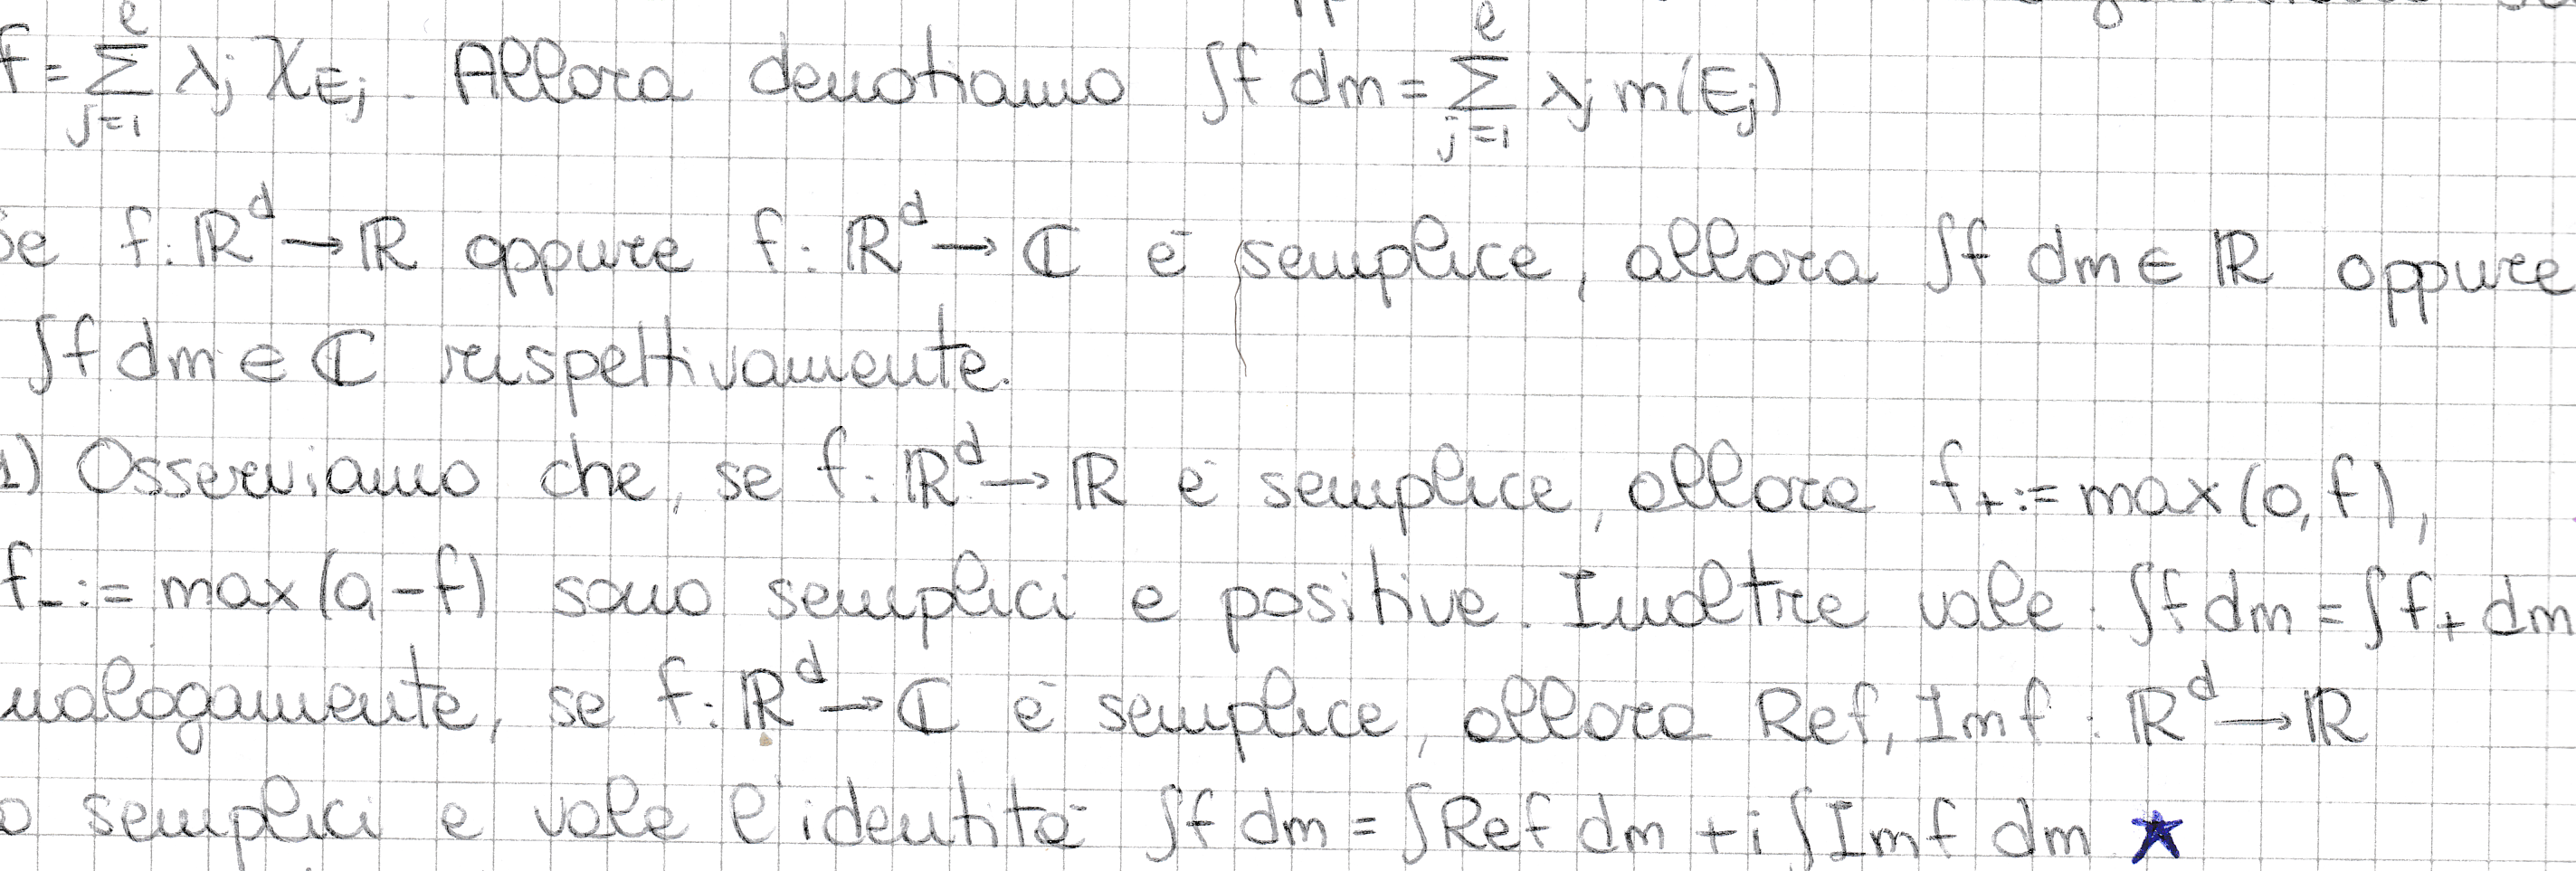 f = ∑_{j=1}^{ℓ} λ_j χ_{E_j}. Allora denotiamo ∫f dm = ∑_{j=1}^{ℓ} λ_j m(E_j)
Se f: ℝ^d → ℝ oppure f: ℝ^d → ℂ è semplice, allora ∫f dm ∈ ℝ oppure
∫f dm ∈ ℂ rispettivamente.
1) Osserviamo che, se f: ℝ^d → ℝ è semplice, allora f₊ := max(0, f),
f₋ := max(0, -f) sono semplici e positive. Inoltre vale: ∫f dm = ∫f₊ dm
nalogamente, se f: ℝ^d → ℂ è semplice, allora Ref, Imf : ℝ^d → ℝ
o semplici e vale l'identità ∫f dm = ∫Ref dm + i ∫Imf dm ★